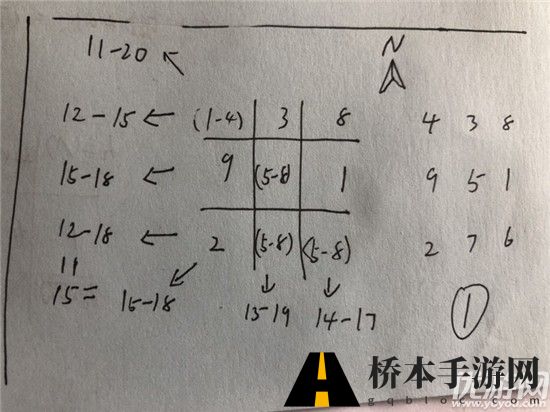 11-20
N
12-15 ← (1-4) 3 8 4 3 8
15-18 ← 9 (5-8) 1 9 5 1
12-18 ← 2 (5-8) (5-8) 2 7 6
11
15= 15-18 13-19 14-17
①
桥本手游网